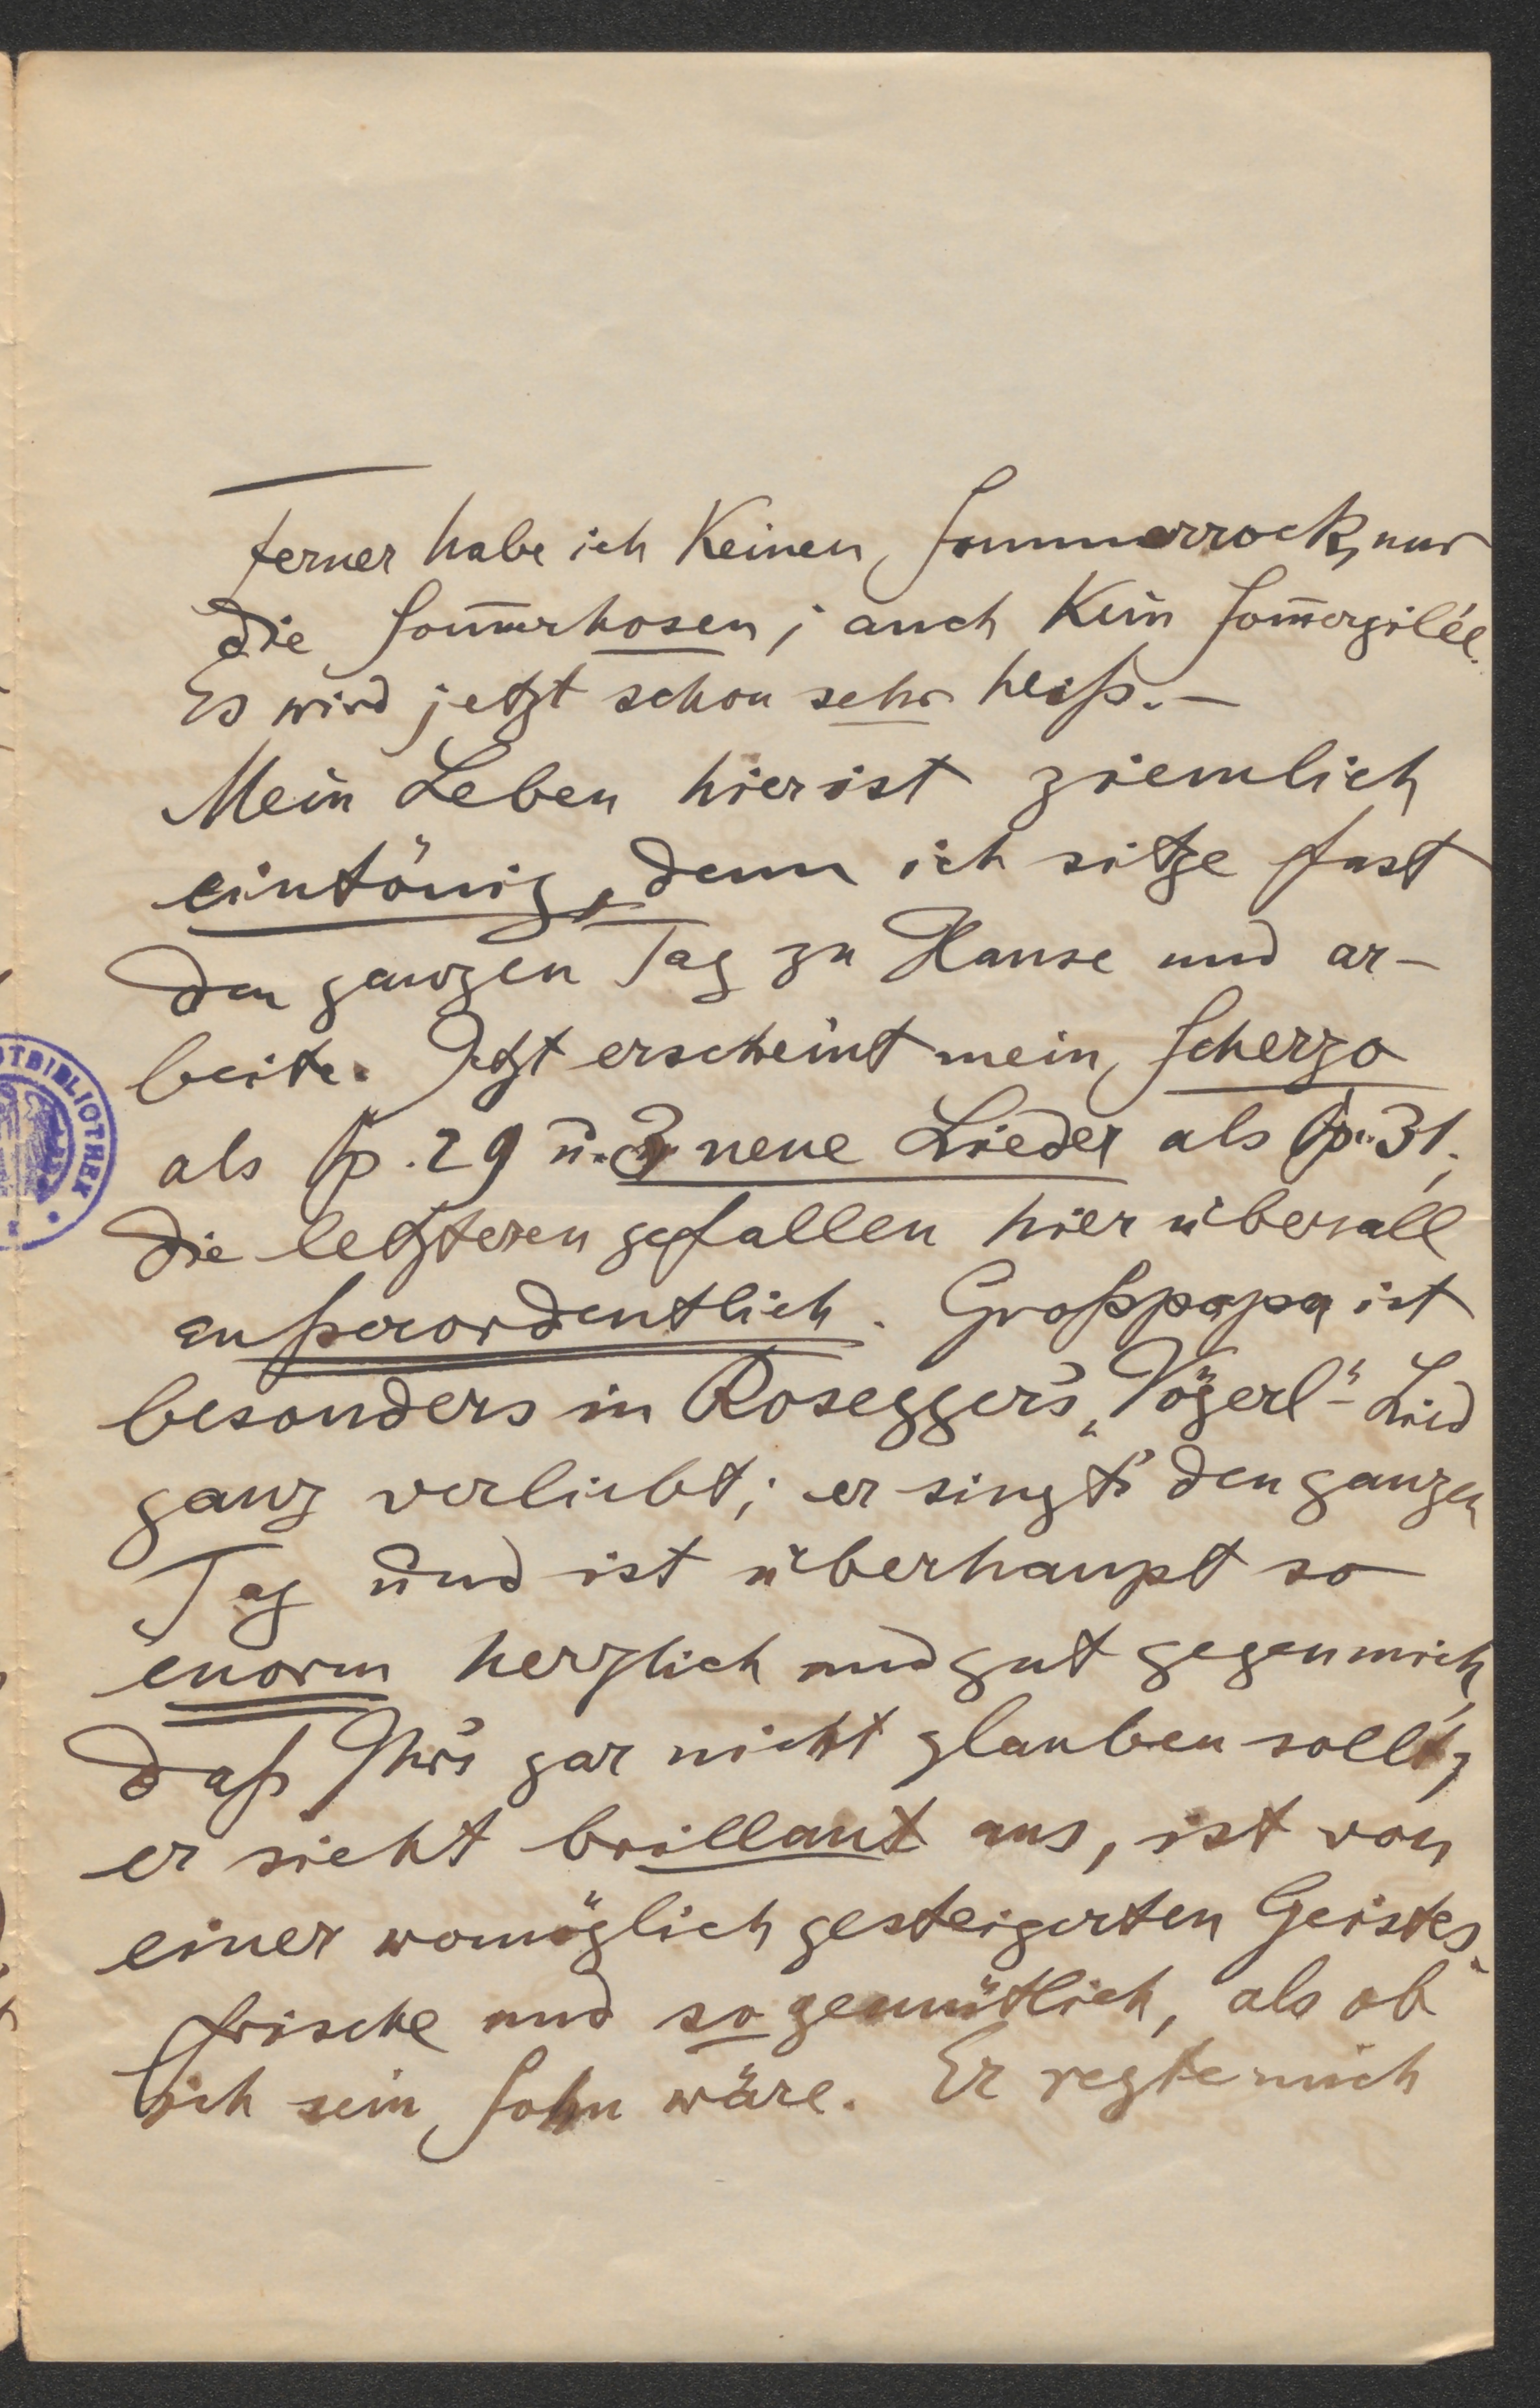 Ferner habe ich Keinen Sommerrock, nur
die Som̅erhosen; auch Kein Som̅ergilée.
Es wird jetzt schon sehr heiß. –
Mein Leben hier ist ziemlich
eintönig, denn ich sitze fast
den ganzen Tag zu Hause und ar-
beite. Jetzt erscheint mein Scherzo
als Op. 29 u. 3 neue Lieder als Op. 31;
die letzteren gefallen hier überall
außerordentlich. Großpapa ist
besonders in Rosegger's „Vögerl"-Lied
ganz verliebt; er singt's den ganzen
Tag und ist überhaupt so
enorm herzlich und gut gegen mich,
daß Ihr's gar nicht glauben sollt;
er sieht brillant aus, ist von
einer womöglich gesteigerten Geistes-
frische und so gemütlich, als ob
ich sein Sohn wäre. Er regte mich
OTBIBLIOTHEK